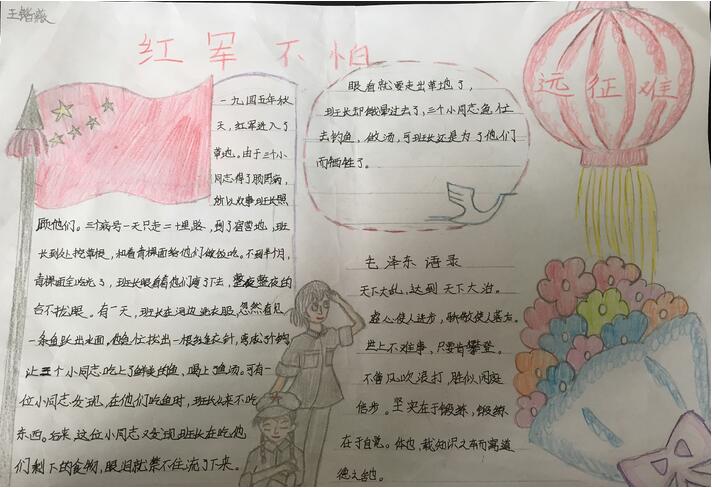 王锴薇
红军不怕
远征难
一九四五年秋
天,红军进入了
草地。由于三个小
同志得了肠胃病,
所以炊事班长照
顾他们。三个病号一天只走二十里路,到了宿营地,班
长到处挖草根,和着青稞面给他们做饭吃。不到半个月,
青稞面全吃光了,班长眼看着他们瘦了下去,整夜整夜的
合不拢眼。有一天,班长在河边洗衣服,忽然看见
一条鱼跃出水面,他急忙拔出一根缝衣针,弯成钓钩,
让三个小同志吃上了鲜美的鱼,喝上了鱼汤。可有一
位小同志发现,在他们吃鱼时,班长从来不吃
东西。后来,这位小同志又发现班长在吃他
们剩下的食物,眼泪就禁不住流了下来。
眼看就要走出草地了,
班长却饿晕过去了,三个小同志急忙
去钓鱼,做汤,可班长还是为了他们
而牺牲了。
毛泽东语录
天下大乱,达到天下大治。
虚心使人进步,骄傲使人落后。
世上不难事,只要肯攀登。
不管风吹浪打,胜似闲庭
信步。坚实在于锻炼,锻炼
在于自觉。体也,载知识之车而寓道
德之舍也。